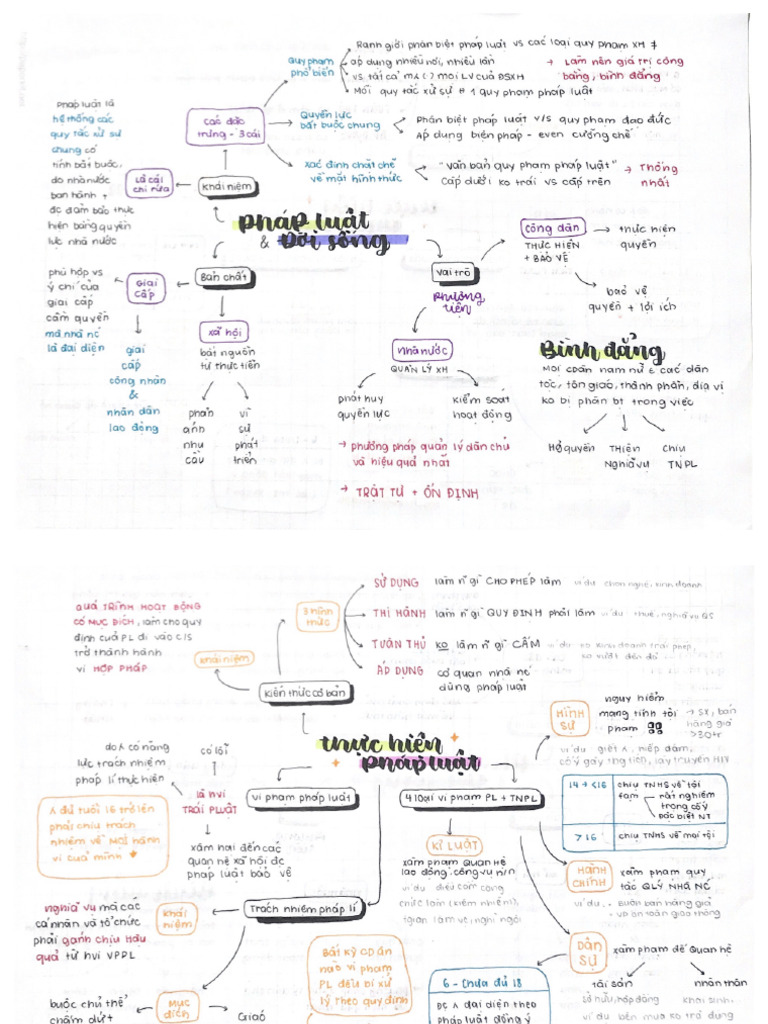 Ranh giới phân biệt pháp luật vs các loại quy phạm XH ≠
áp dụng nhiều nơi, nhiều lần
vs tất cả mọi LV của ĐSXH
Mỗi quy tắc xử sự # 1 quy phạm pháp luật
→ Làm nên giá trị công
bằng, bình đẳng
Quy phạm
phổ biến
Quyền lực
bắt buộc chung
Phân biệt pháp luật v/s quy phạm đạo đức
Áp dụng biện pháp - even cưỡng chế
Xác định chặt chẽ
về mặt hình thức
"văn bản quy phạm pháp luật"
Cấp dưới ko trái vs cấp trên
→ Thống
nhất
Các đặc
trưng - 3 cái
Pháp luật là
hệ thống các
quy tắc xử sự
chung có
tính bắt buộc,
do nhà nước
ban hành +
đc đảm bảo thực
hiện bằng quyền
lực nhà nước
Là cái
chi rứa
Khái niệm
pháp luật
& Đời sống
Bản chất
Giai
cấp
phù hợp vs
ý chí của
giai cấp
cầm quyền
mà nhà nc
là đại diện
giai
cấp
công nhân
&
nhân dân
lao động
xã hội
bắt nguồn
từ thực tiễn
phản
ánh
nhu
cầu
vì
sự
phát
triển
Vai trò
phương
tiện
công dân
THỰC HIỆN
+ BẢO VỆ
thực hiện
quyền
bảo vệ
quyền + lợi ích
nhà nước
QUẢN LÝ XH
phát huy
quyền lực
kiểm soát
hoạt động
→ phương pháp quản lý dân chủ
và hiệu quả nhất
→ TRẬT TỰ + ỔN ĐỊNH
Bình đẳng
Mọi cdân nam nữ € các dân
tộc, tôn giáo, thành phần, địa vị
ko bị phân bt trong việc
Hg quyền
THIỆN
Nghĩa vụ
Chịu
TNPL
QUÁ TRÌNH HOẠT ĐỘNG
CÓ MỤC ĐÍCH, làm cho quy
định của PL đi vào C/S
trở thành hành
vi HỢP PHÁP
khái niệm
3 hình
thức
SỬ DỤNG làm n~ gì CHO PHÉP làm ví dụ chọn nghề, kinh doanh
THI HÀNH làm n~ gì QUY ĐỊNH phải làm ví dụ thuế, nghĩa vụ QS
TUÂN THỦ ko làm n~ gì CẤM ví dụ ko kinh doanh trái phép,
ko vượt đèn đỏ
ÁP DỤNG cơ quan nhà nc
dùng pháp luật
kiến thức cơ bản
thực hiện
pháp luật
vi phạm pháp luật
do A có năng
lực trách nhiệm
pháp lí thực hiện
có lỗi
là hvi
TRÁI PLUẬT
xâm hại đến các
quan hệ xã hội đc
pháp luật bảo vệ
A đủ tuổi 16 trở lên
phải chịu trách
nhiệm về mọi hành
vi của mình
4 loại vi phạm PL + TNPL
HÌNH
SỰ
nguy hiểm
mạng tính tội
phạm
→ SX, bán
hàng giả
>30tr
ví dụ giết A, hiếp dâm,
cố ý gây thg tích, lây truyền HIV
14 → <16
chịu TNHS về tội
phạm
rất nghiêm
trọng cố ý
Đặc biệt NT
≥ 16
chịu TNHS về mọi tội
KỈ LUẬT
xâm phạm QUAN HỆ
lao động, công vụ n/n
ví dụ điều com công
chức làm (kiêm nhiệm),
tgian làm vc, nghỉ ngơi
HÀNH
CHÍNH
xâm phạm quy
tắc QLÝ NHÀ NC
ví dụ .. buôn bán hàng giả
DÂN
SỰ
xâm phạm đế Quan hệ
tài sản
sở hữu, hợp đồng
nhân thân
khai sinh,
ví dụ bên mua ko trả đúng
Trách nhiệm pháp lí
khái
niệm
nghĩa vụ mà các
cá nhân và tổ chức
phải gánh chịu hậu
quả từ hvi VPPL
Mục
đích
buộc chủ thể
chấm dứt
Giáo
Bất kỳ CD ản
nào vi phạm
PL đều bị xử
lý theo quy định
6 - chưa đủ 18
ĐC A đại diện theo
pháp luật đồng ý